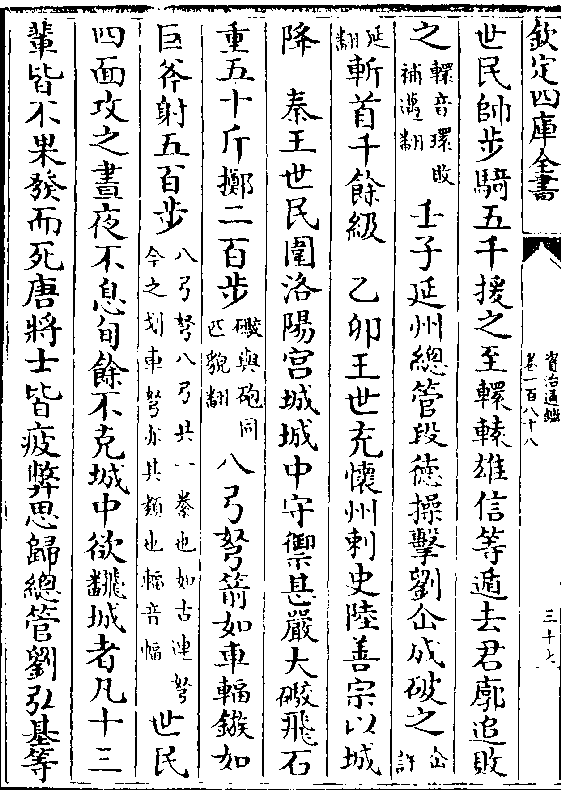 欽定四庫全書
資治通鑑
卷一百八十八
三十七
世民帥步騎五千援之至轘轅雄信等遁去君廓追敗
之轘音環敗補邁翻 壬子延州總管段德操擊劉仚成破之仚許
延翻斬首千餘級 乙卯王世充懷州刺史陸善宗以城
降 秦王世民圍洛陽宫城城中守禦甚嚴大礮飛石
重五十斤擲二百步礮與砲同匹貌翻八弓弩箭如車輻鏃如
巨斧射五百步八弓弩八弓共一豢也如古連弩今之划車弩亦其類也輻音福世民
四面攻之晝夜不息旬餘不克城中欲飜城者凡十三
輩皆不果發而死唐將士皆疲弊思歸總管劉弘基等